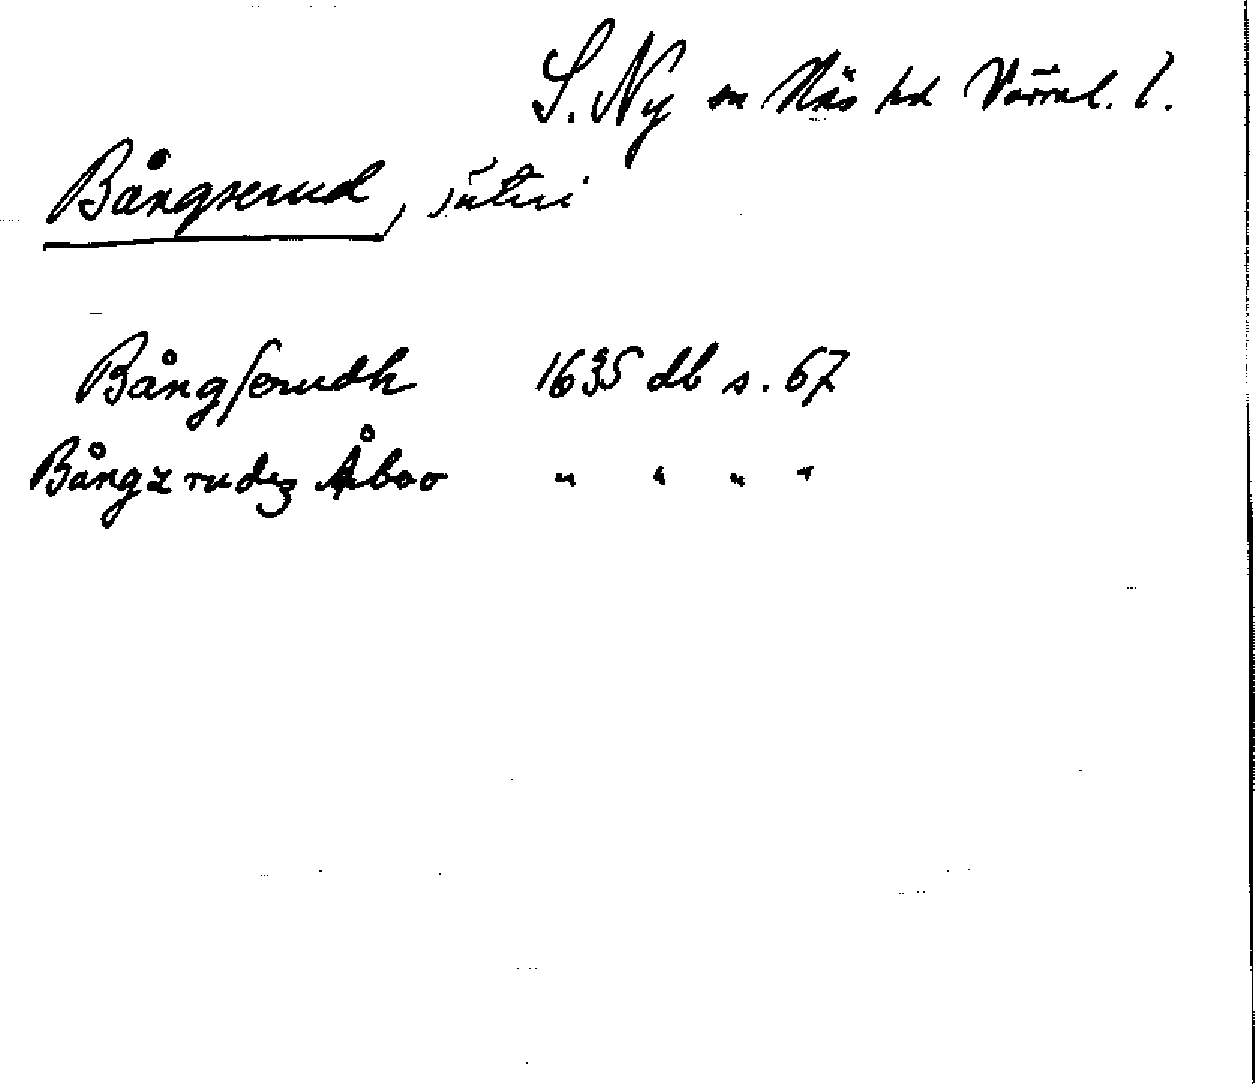 S. Ny sn Näs hd Värml. l.
Bångserud, säteri
Bångſerudh 1635 db s. 67
Bångz rudz Åboo " " " "